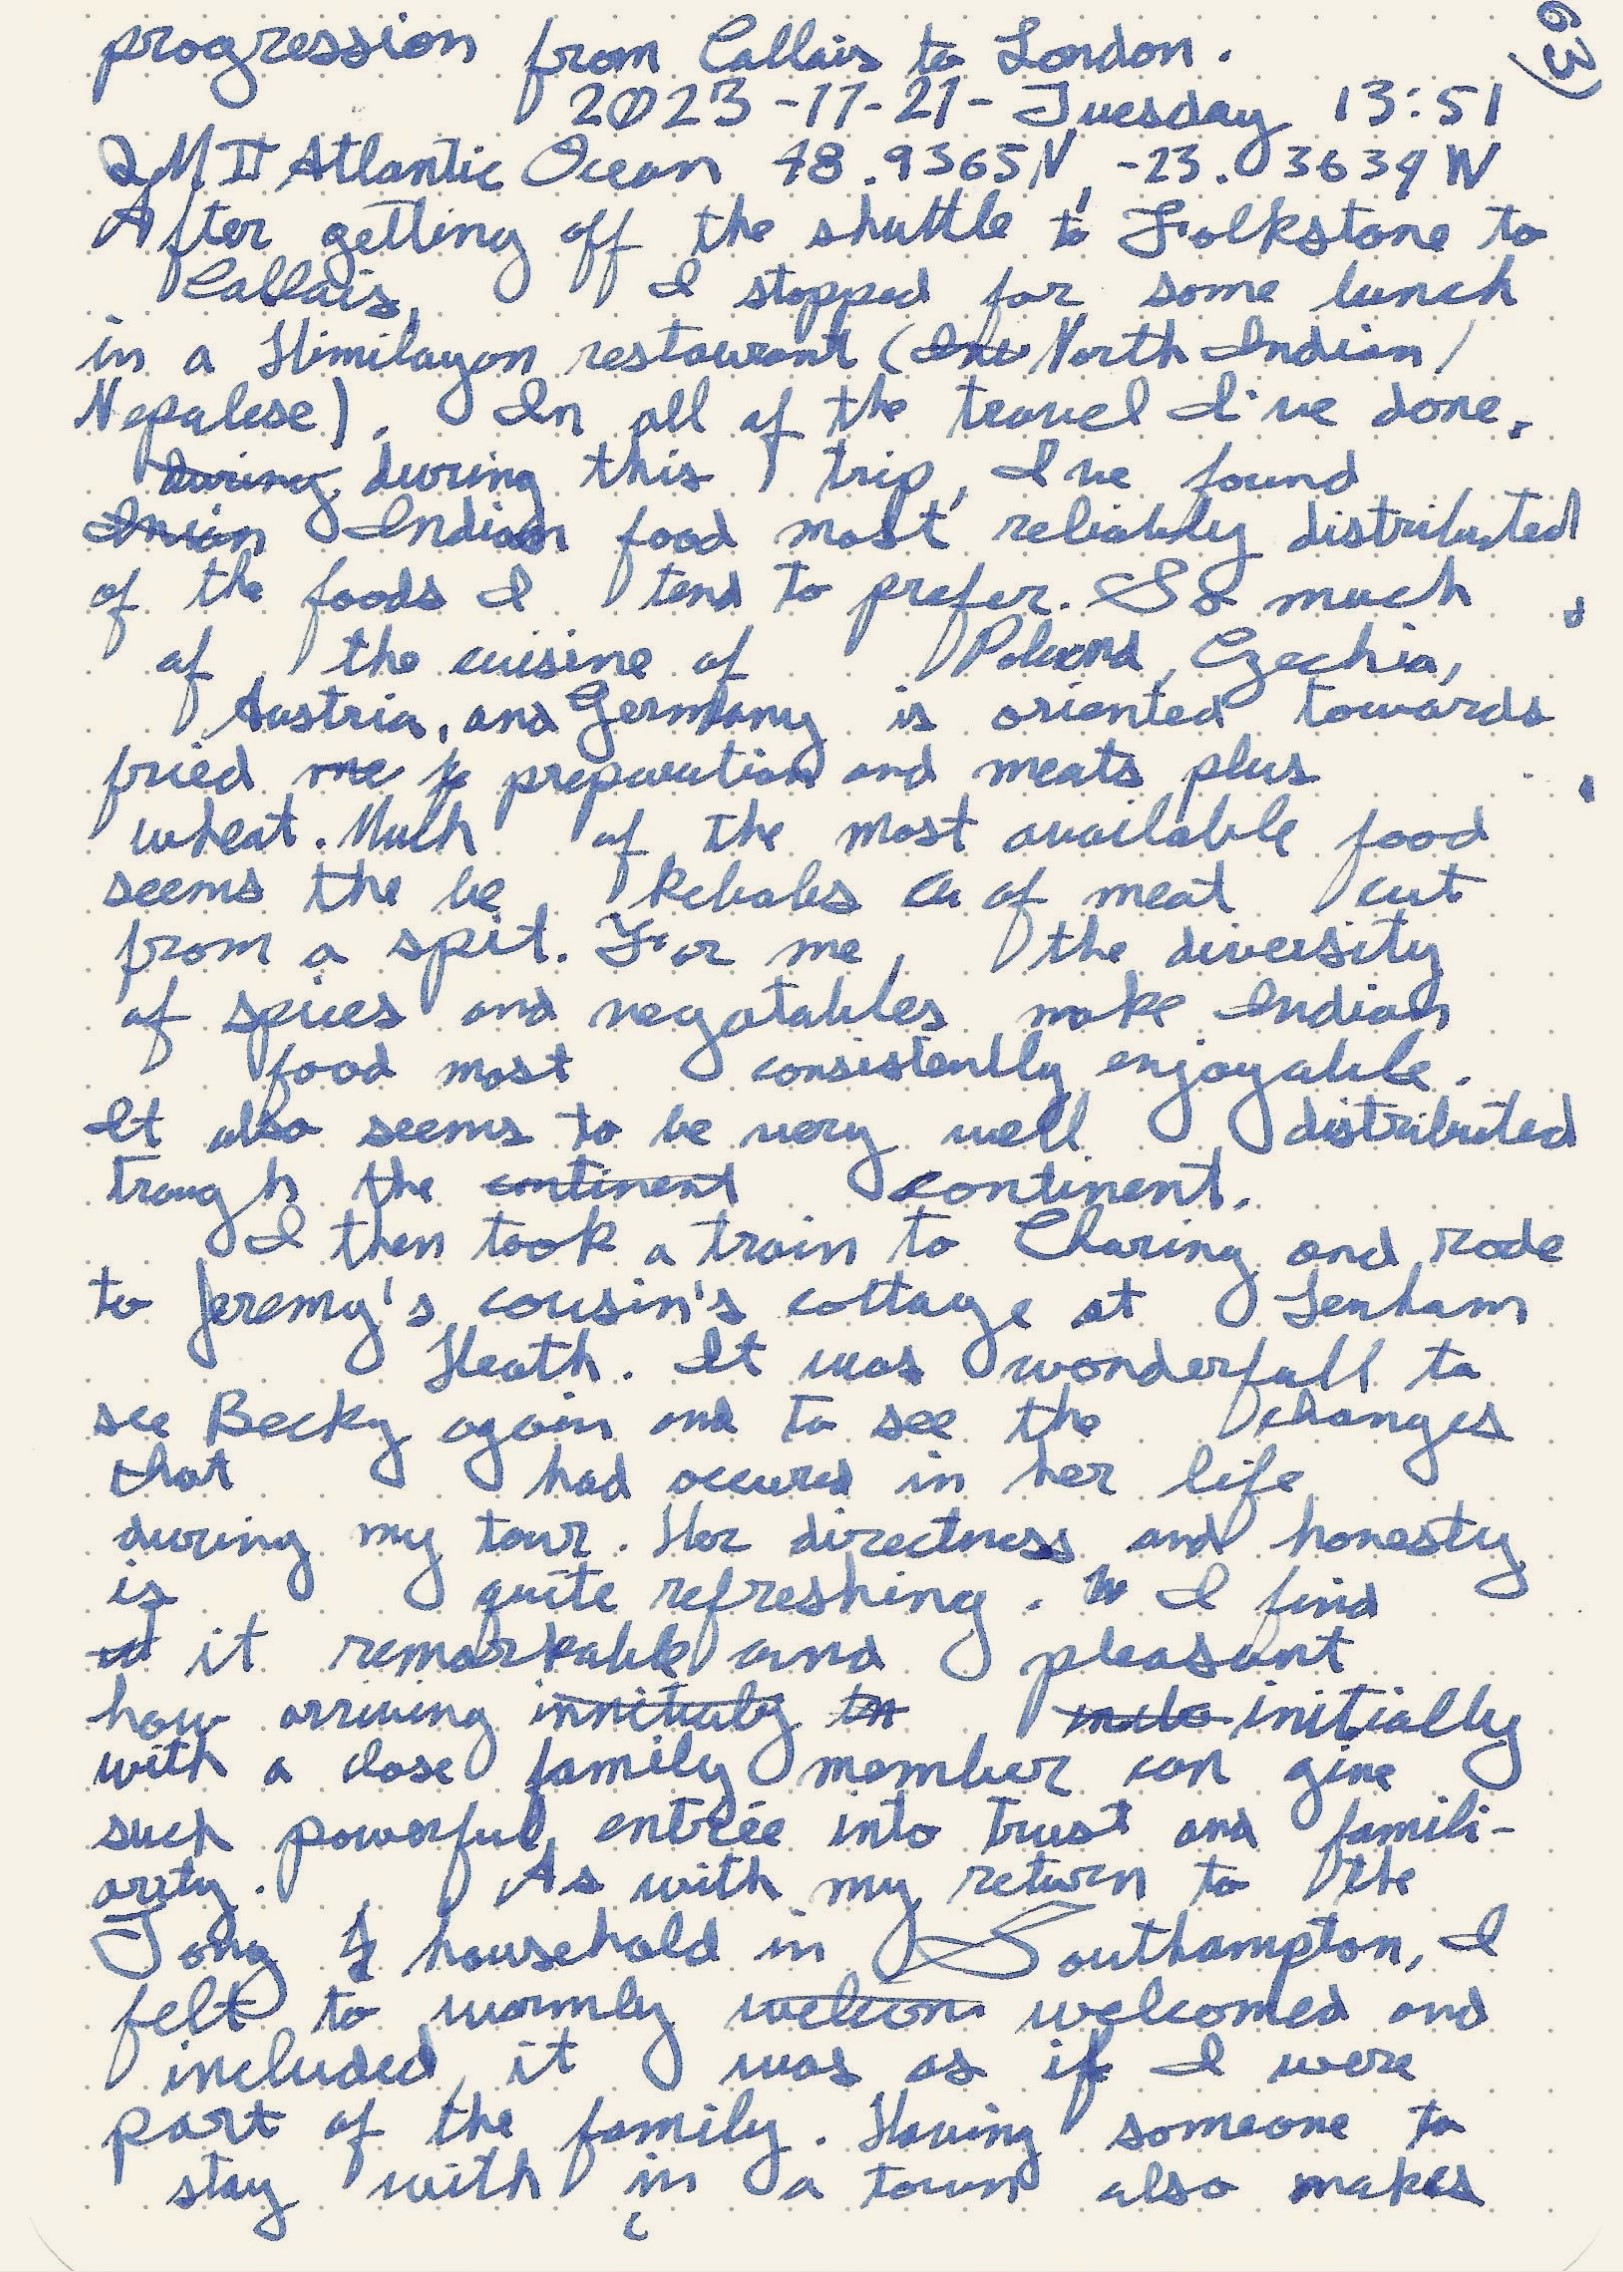 63)
progression from Callais to London.
2023-11-21- Tuesday 13:51
QM II Atlantic Ocean 48.9365N, -23.03639W
After getting off the shuttle to Folkstone to
Callais, I stopped for some lunch
in a Himilayan restaurant (North Indian/
Nepalese). In all of the travel I've done,
during during this trip, I've found
Indian food most reliably distributed
of the foods I tend to prefer. So much
of the cuisine of Poland, Czechia,
Austria, and Germany is oriented towards
fried me preparation and meats plus
wheat. Much of the most available food
seems the be kebabs of meat cut
from a spit. For me, the diversity
of spices and vegatables make Indian
food most consistently enjoyable.
It also seems to be very well distributed
trough the continent continent.
I then took a train to Charing and rode
to Jeremy's cousin's cottage at Lenham
Heath. It was wonderfull to
see Becky again and to see the changes
that had occured in her life
during my tour. Her directness and honesty
is quite refreshing. I find
it remarkable and pleasant
how arriving innitialy initially
with a close family member can give
such powerful entrée into trust and famili-
arity. As with my return to the
Tong household in Southampton, I
felt to warmly welcom welcomed and
included, it was as if I were
part of the family. Having someone to
stay with in a town also makes